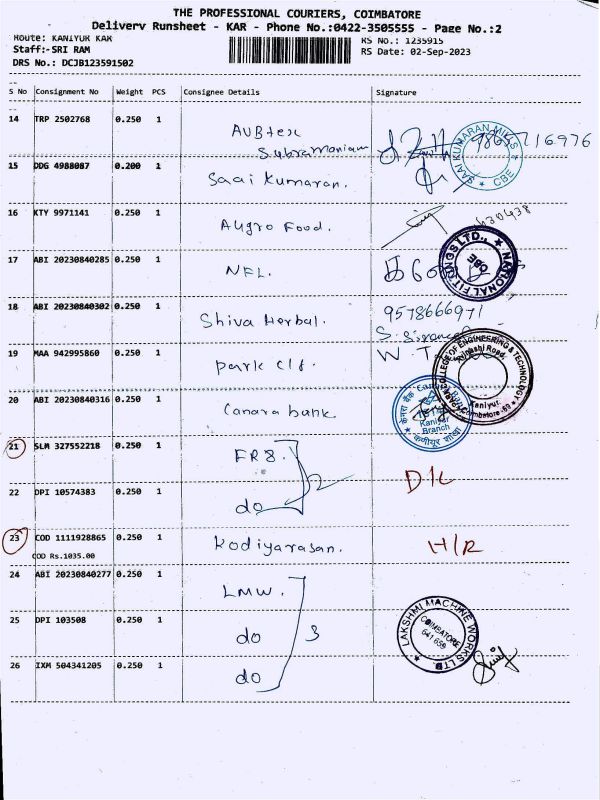 THE PROFESSIONAL COURIERS, COIMBATORE
Delivery Runsheet - KAR - Phone No.:0422-3505555 - Page No.:2
Route: KANIYUR KAR
RS No.: 1235915
Staff:-SRI RAM
RS Date: 02-Sep-2023
DRS No.: DCJB123591502
S No Consignment No Weight PCS Consignee Details Signature
14 TRP 2502768 0.250 1 AUBtex Subramaniam
SAAI KUMARAN MILLS CBE
15 DDG 4988087 0.200 1 Saai Kumaran.
16 KTY 9971141 0.250 1 Augro Food.
17 ABI 20230840285 0.250 1 NFL.
NATIONAL FITTINGS LTD., CBE
18 ABI 20230840302 0.250 1 Shiva Herbal. 9578666971
19 MAA 942995860 0.250 1 park clg.
COLLEGE OF ENGINEERING & TECHNOLOGY
Kaniyur, Coimbatore-59
20 ABI 20230840316 0.250 1 Canara bank
केनरा बैंक Canara Bank
Kaniyur Branch
कणीयूर शाखा
21 SLM 327552218 0.250 1 FRS. 2
22 DPI 10574383 0.250 1 do D/L
23 COD 1111928865 0.250 1 Kodiyarasan. H/R
COD Rs.1035.00
24 ABI 20230840277 0.250 1 LMW.
25 DPI 103508 0.250 1 do 3
LAKSHMI MACHINE WORKS LTD
COIMBATORE 641 659
26 IXM 504341205 0.250 1 do